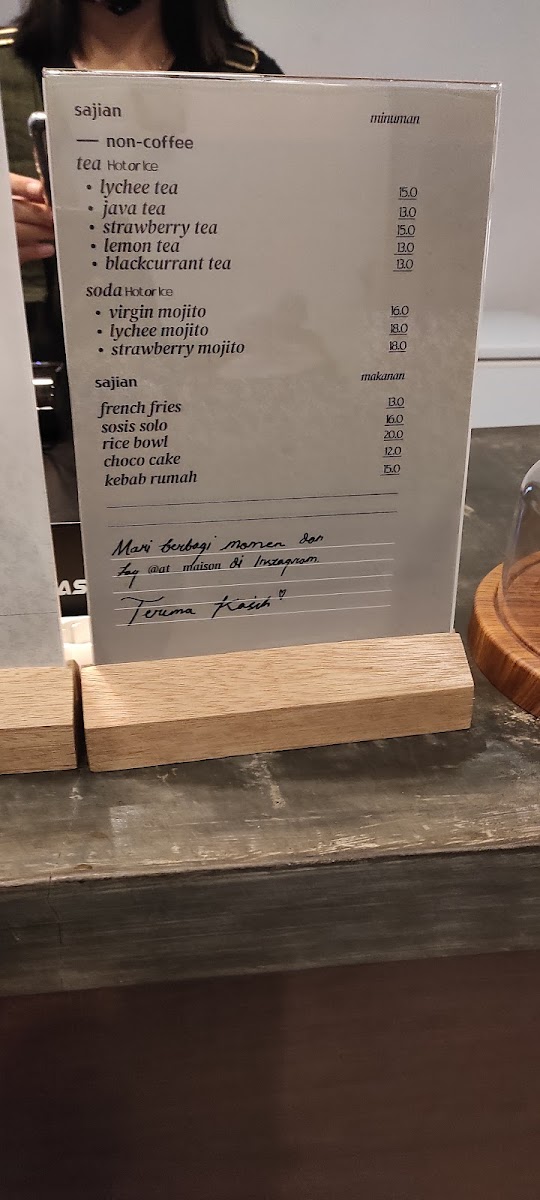 sajian minuman
— non-coffee
tea Hot or Ice
• lychee tea 15.0
• java tea 13.0
• strawberry tea 15.0
• lemon tea 13.0
• blackcurrant tea 13.0
soda Hot or Ice
• virgin mojito 16.0
• lychee mojito 18.0
• strawberry mojito 18.0
sajian makanan
french fries 13.0
sosis solo 16.0
rice bowl 20.0
choco cake 12.0
kebab rumah 15.0
Mari berbagi momen dan
tag @at_maison di Instagram
Terima Kasih ♡
AS